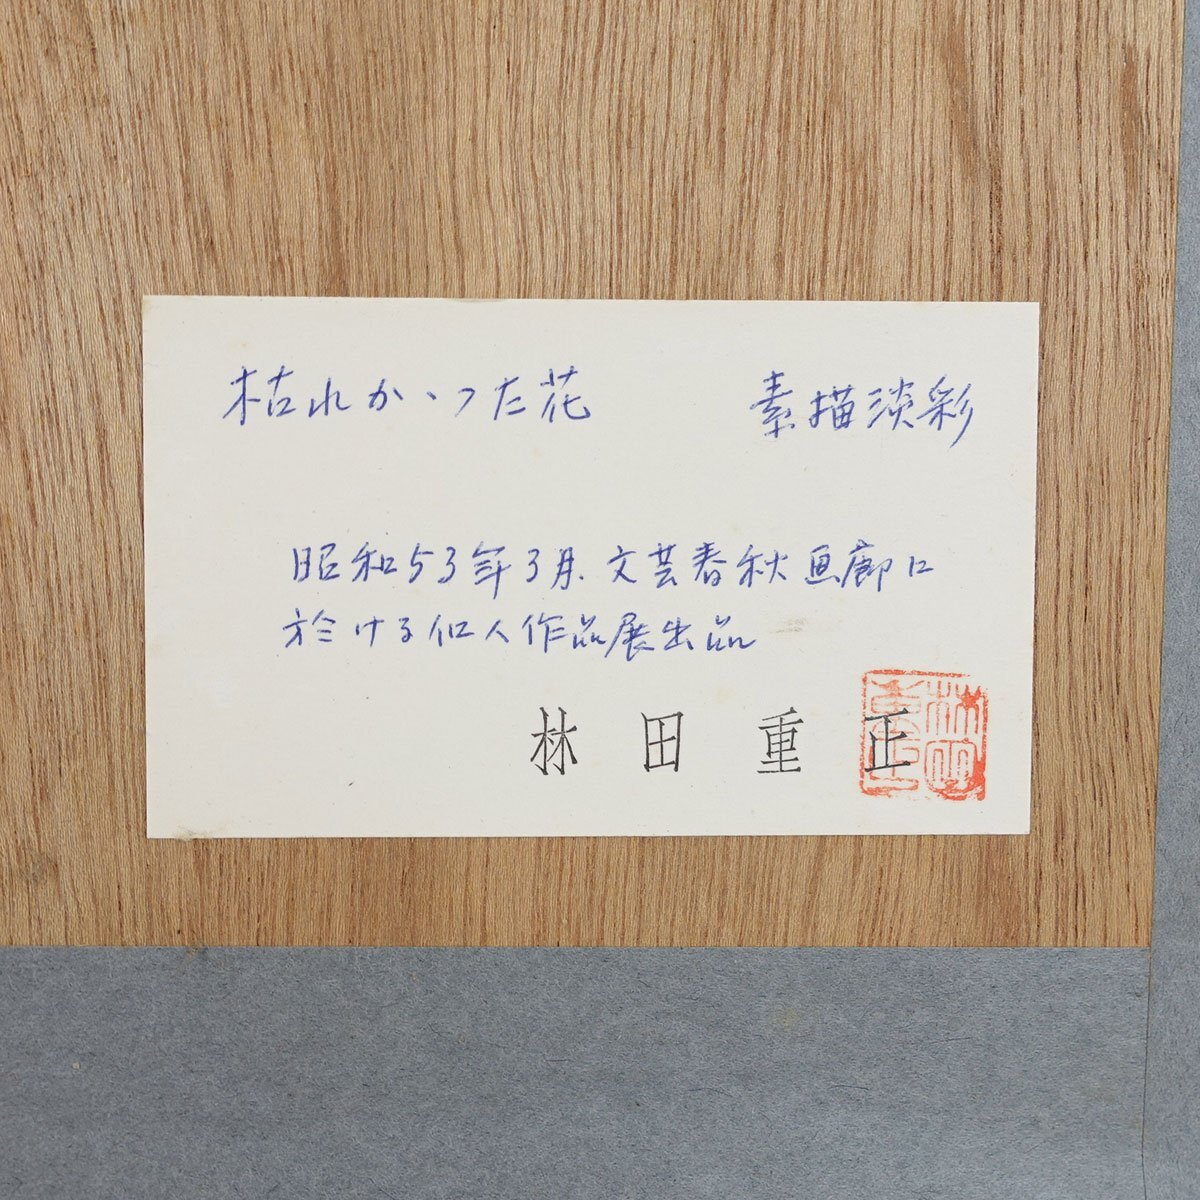 枯れかゝった花 素描淡彩
昭和53年3月.文芸春秋画廊に
於ける個人作品展出品
林田重正